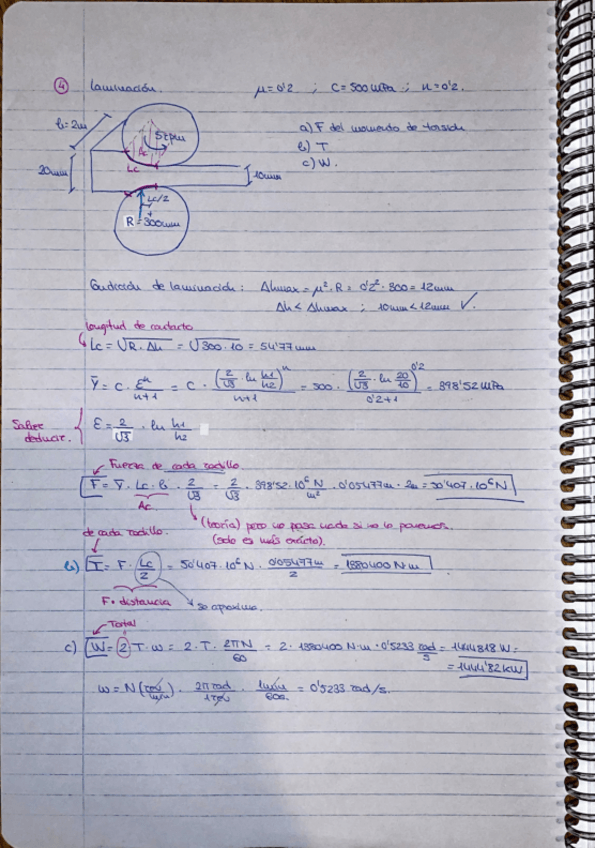 ④ Laminación. μ=0'2 ; C=500MPa ; n=0'2.
b=2m
5rpm
Ac
Lc
20mm
10mm
Lc/2
R=300mm
a) F del momento de torsión
b) T
c) W.
Condición de laminación: Δhmax = μ²·R = 0'2²·300 = 12mm
Δh < Δhmax ; 10mm < 12mm ✓.
longitud de contacto
Lc = √R·Δh = √300·10 = 54'77mm
Ȳ = C · εⁿ/(n+1) = C · (2/√3 · ln h1/h2)ⁿ/(n+1) = 500 · (2/√3 · ln 20/10)^0'2/(0'2+1) = 398'52MPa
Saber deducir.
ε = 2/√3 · ln h1/h2
Fuerza de cada rodillo
F = Ȳ · Lc · b · 2/√3 = 2/√3 · 398'52·10⁶ N/m² · 0'05477m · 2m = 50'407·10⁶N
Ac
(teoría) pero no pasa nada si no lo ponemos.
(solo es más exacto).
de cada rodillo.
b) T = F · Lc/2 = 50'407·10⁶N · 0'05477m/2 = 1380400 N·m
F · distancia
Se aproxima.
Total
c) W = 2·T·w = 2·T·2πN/60 = 2·1380400 N·m·0'5233 rad/s = 1444818 W =
= 1444'82 kW
w = N (rev/min) · 2π rad/1rev · 1min/60s. = 0'5233 rad/s.